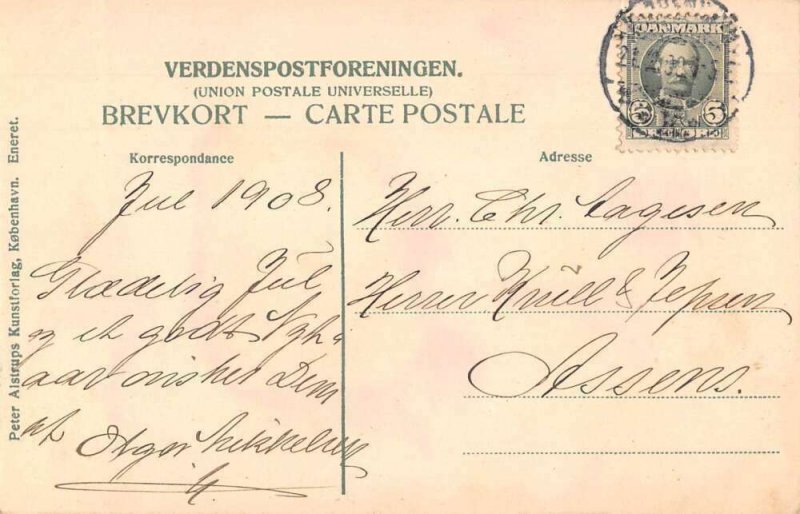 VERDENSPOSTFORENINGEN.
(UNION POSTALE UNIVERSELLE)
BREVKORT — CARTE POSTALE
DANMARK
5 5
Korrespondance
Adresse
Peter Alstrups Kunstforlag, København. Eneret.
Jul 1908.
Glædelig Jul
og et godt Nyt
aar ønsker Dem
Mikkelsen
Herr. Chr. Aagesen
Herrer Krüll & Jepsen
Assens.